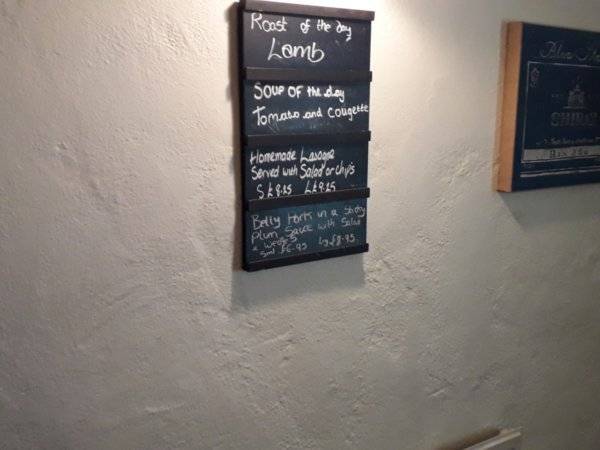 Roast of the day
Lamb
Soup of the day
Tomato and Cougette
Homemade Lasagne
Served with Salad or chips
S £8.25 L £9.25
Belly Pork in a Sticky
Plum Sauce with Salad
& Wedges
Sml £6.95 Lg £8.95
SHIRAZ